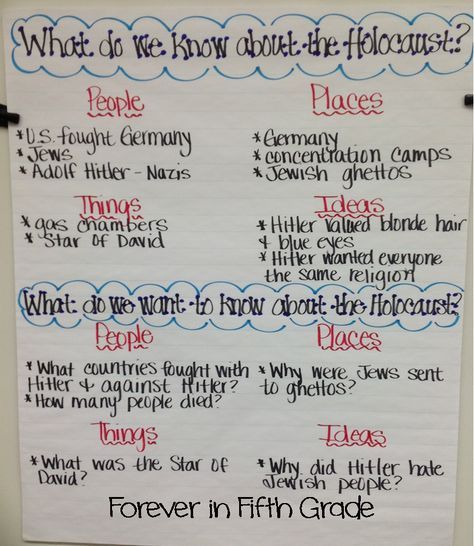 What do we know about the Holocaust?
People
*U.S. fought Germany
*Jews
* Adolf Hitler - Nazis
Places
*Germany
*concentration camps
*Jewish ghettos
Things
*gas chambers
* Star of David
Ideas
*Hitler valued blonde hair
& blue eyes
* Hitler wanted everyone
the same religion
What do we want to know about the Holocaust?
People
*What countries fought with
Hitler & against Hitler?
*How many people died?
Places
*Why were Jews sent
to ghettos?
Things
*What was the Star of
David?
Ideas
*Why did Hitler hate
Jewish people?
Forever in Fifth Grade